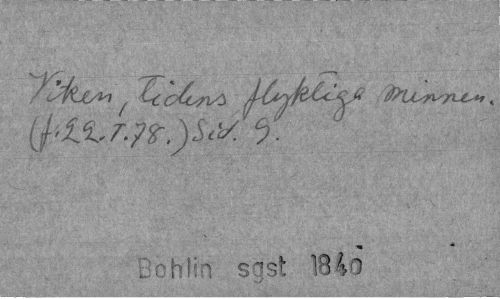 Viken, tidens flyktiga minnen.
(f. 22. I. 78.) Sid. 9.
Bohlin sgst 1840